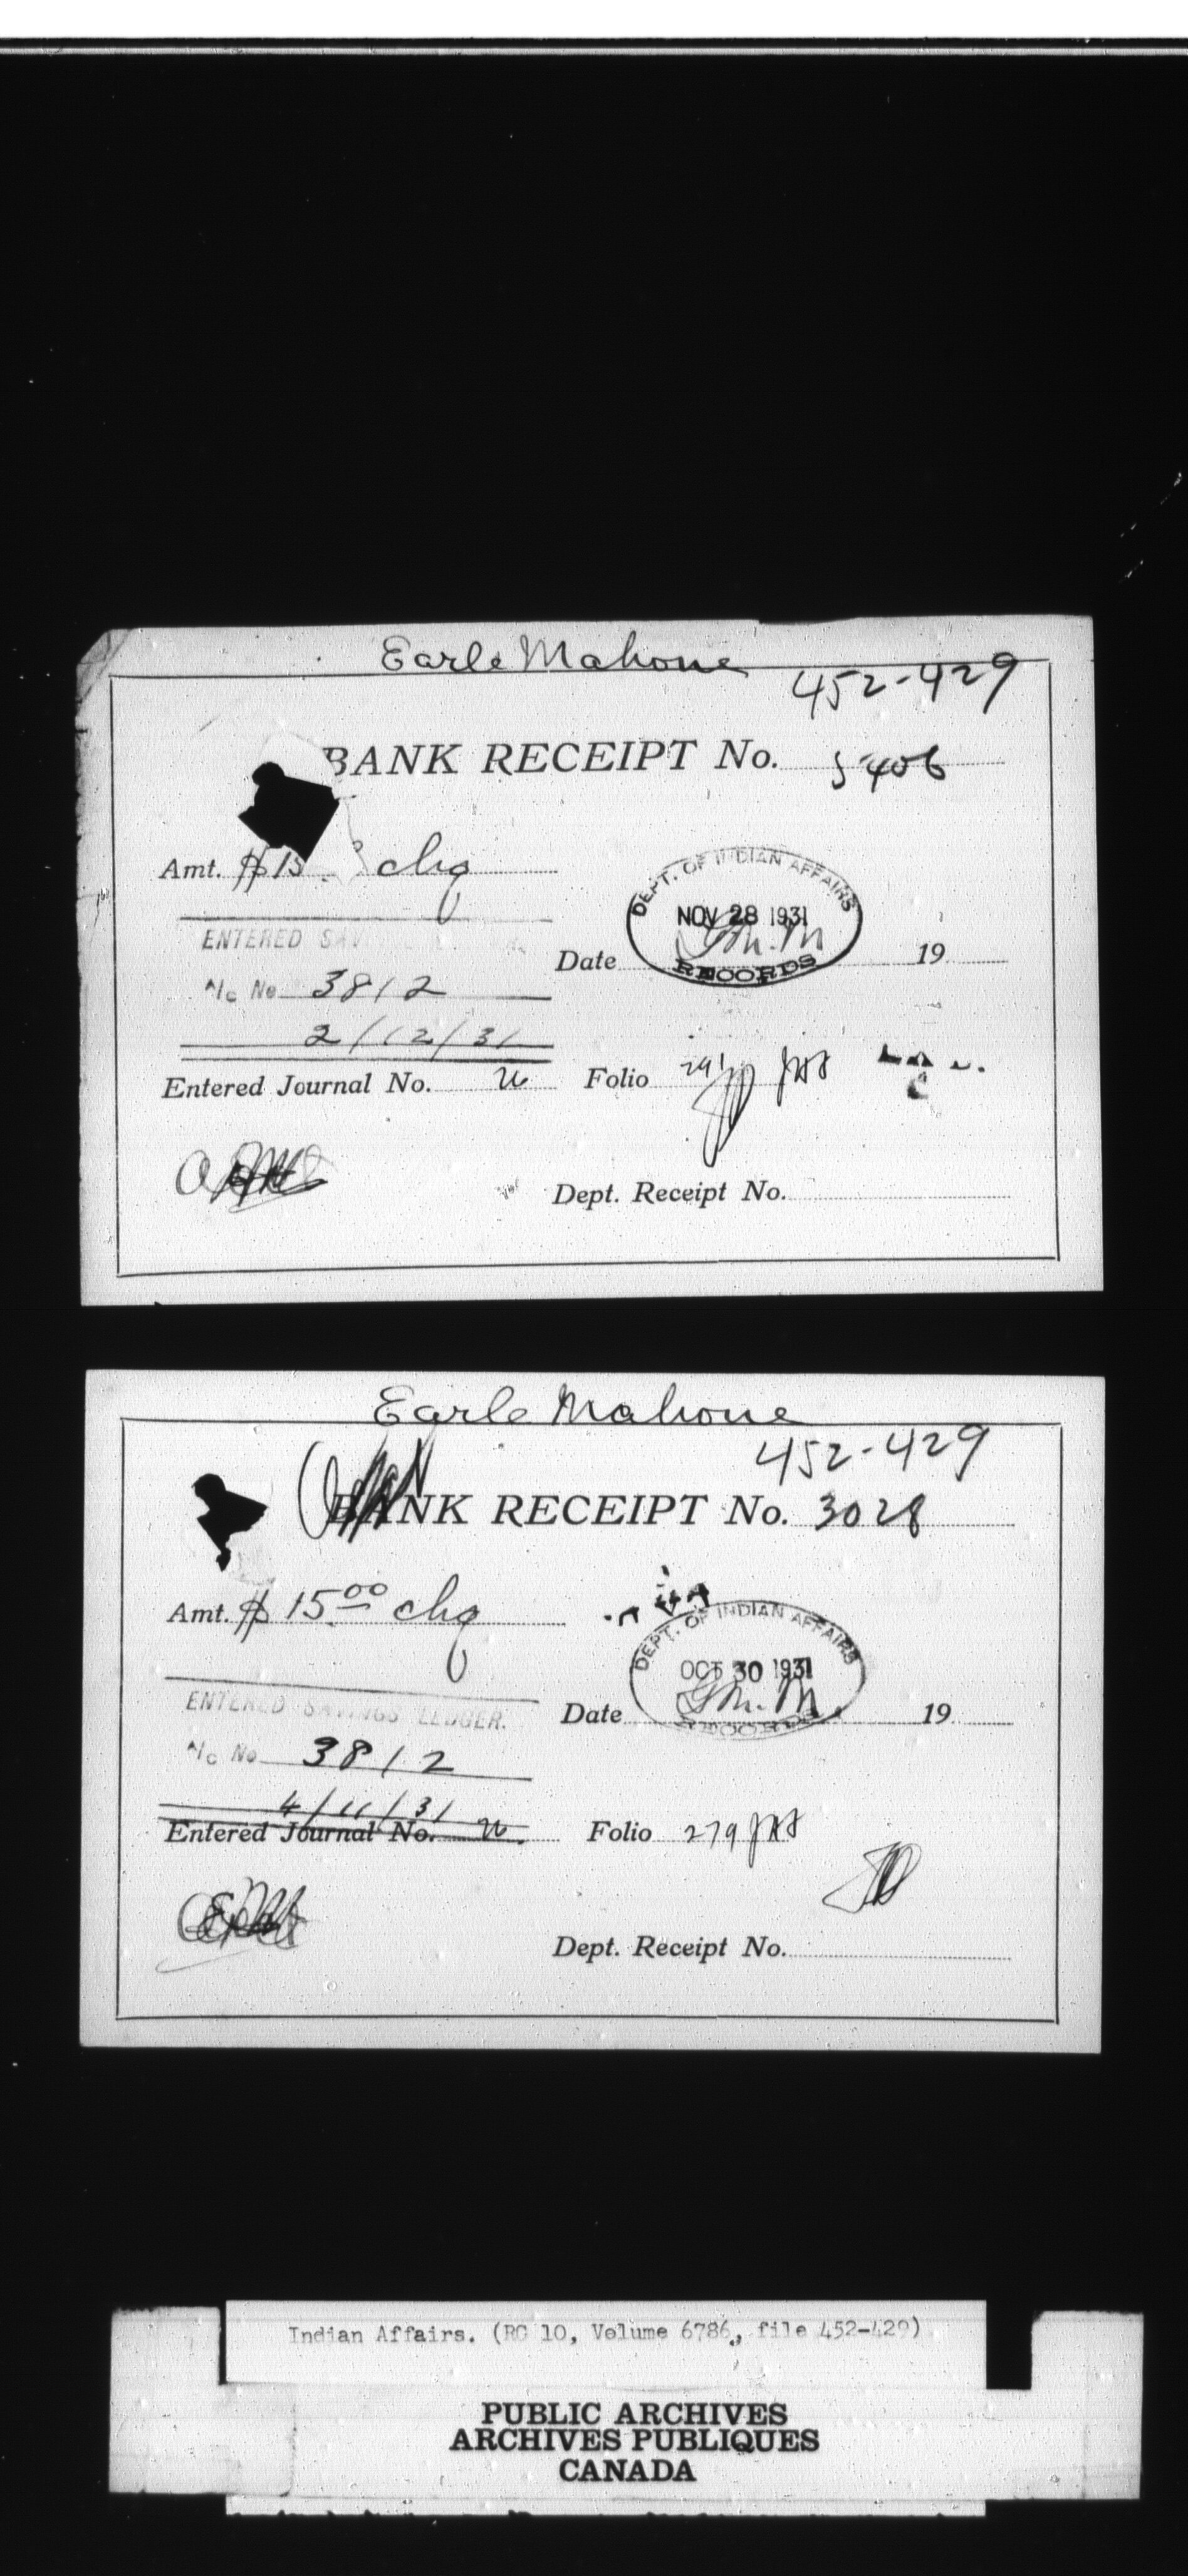 Earle Mahone
452-429
BANK RECEIPT No. 5406
Amt. $15 chq
DEPT. OF INDIAN AFFAIRS
NOV 28 1931
RECORDS
ENTERED
Date 19
A/c No 3812
2/12/31
Entered Journal No. Folio
Dept. Receipt No.
Earle Mahone
452-429
BANK RECEIPT No. 3028
Amt. $15 00 chq
DEPT. OF INDIAN AFFAIRS
OCT 30 1931
RECORDS
ENTERED SAVINGS LEDGER.
Date 19
A/c No 3812
4/11/31
Entered Journal No. Folio 279
Dept. Receipt No.
Indian Affairs. (RG 10, Volume 6786, file 452-429)
PUBLIC ARCHIVES
ARCHIVES PUBLIQUES
CANADA